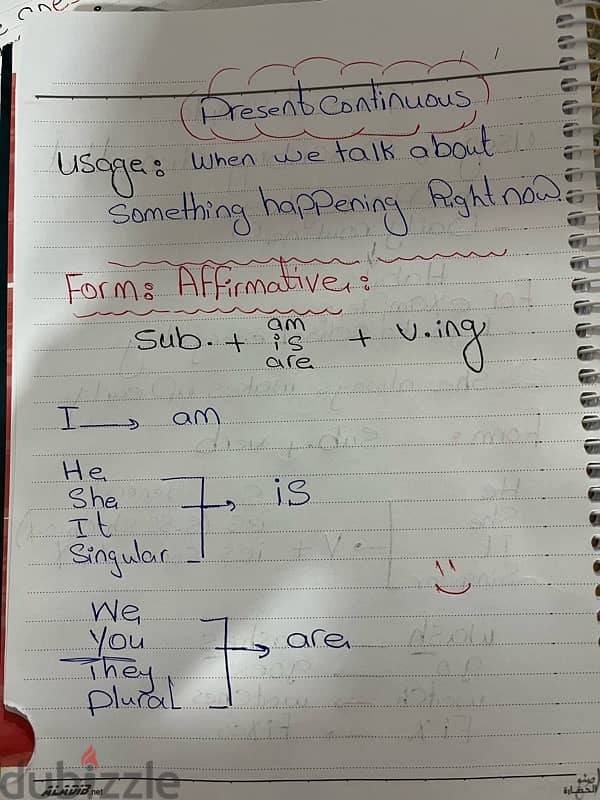 Present Continuous
Usage: When we talk about
Something happening Right now.
Form: Affirmative:
Sub. + am is are + V.ing
I → am
He
She
It
Singular
is
We
You
They
Plural
are
dubizzle
ALADIB.net